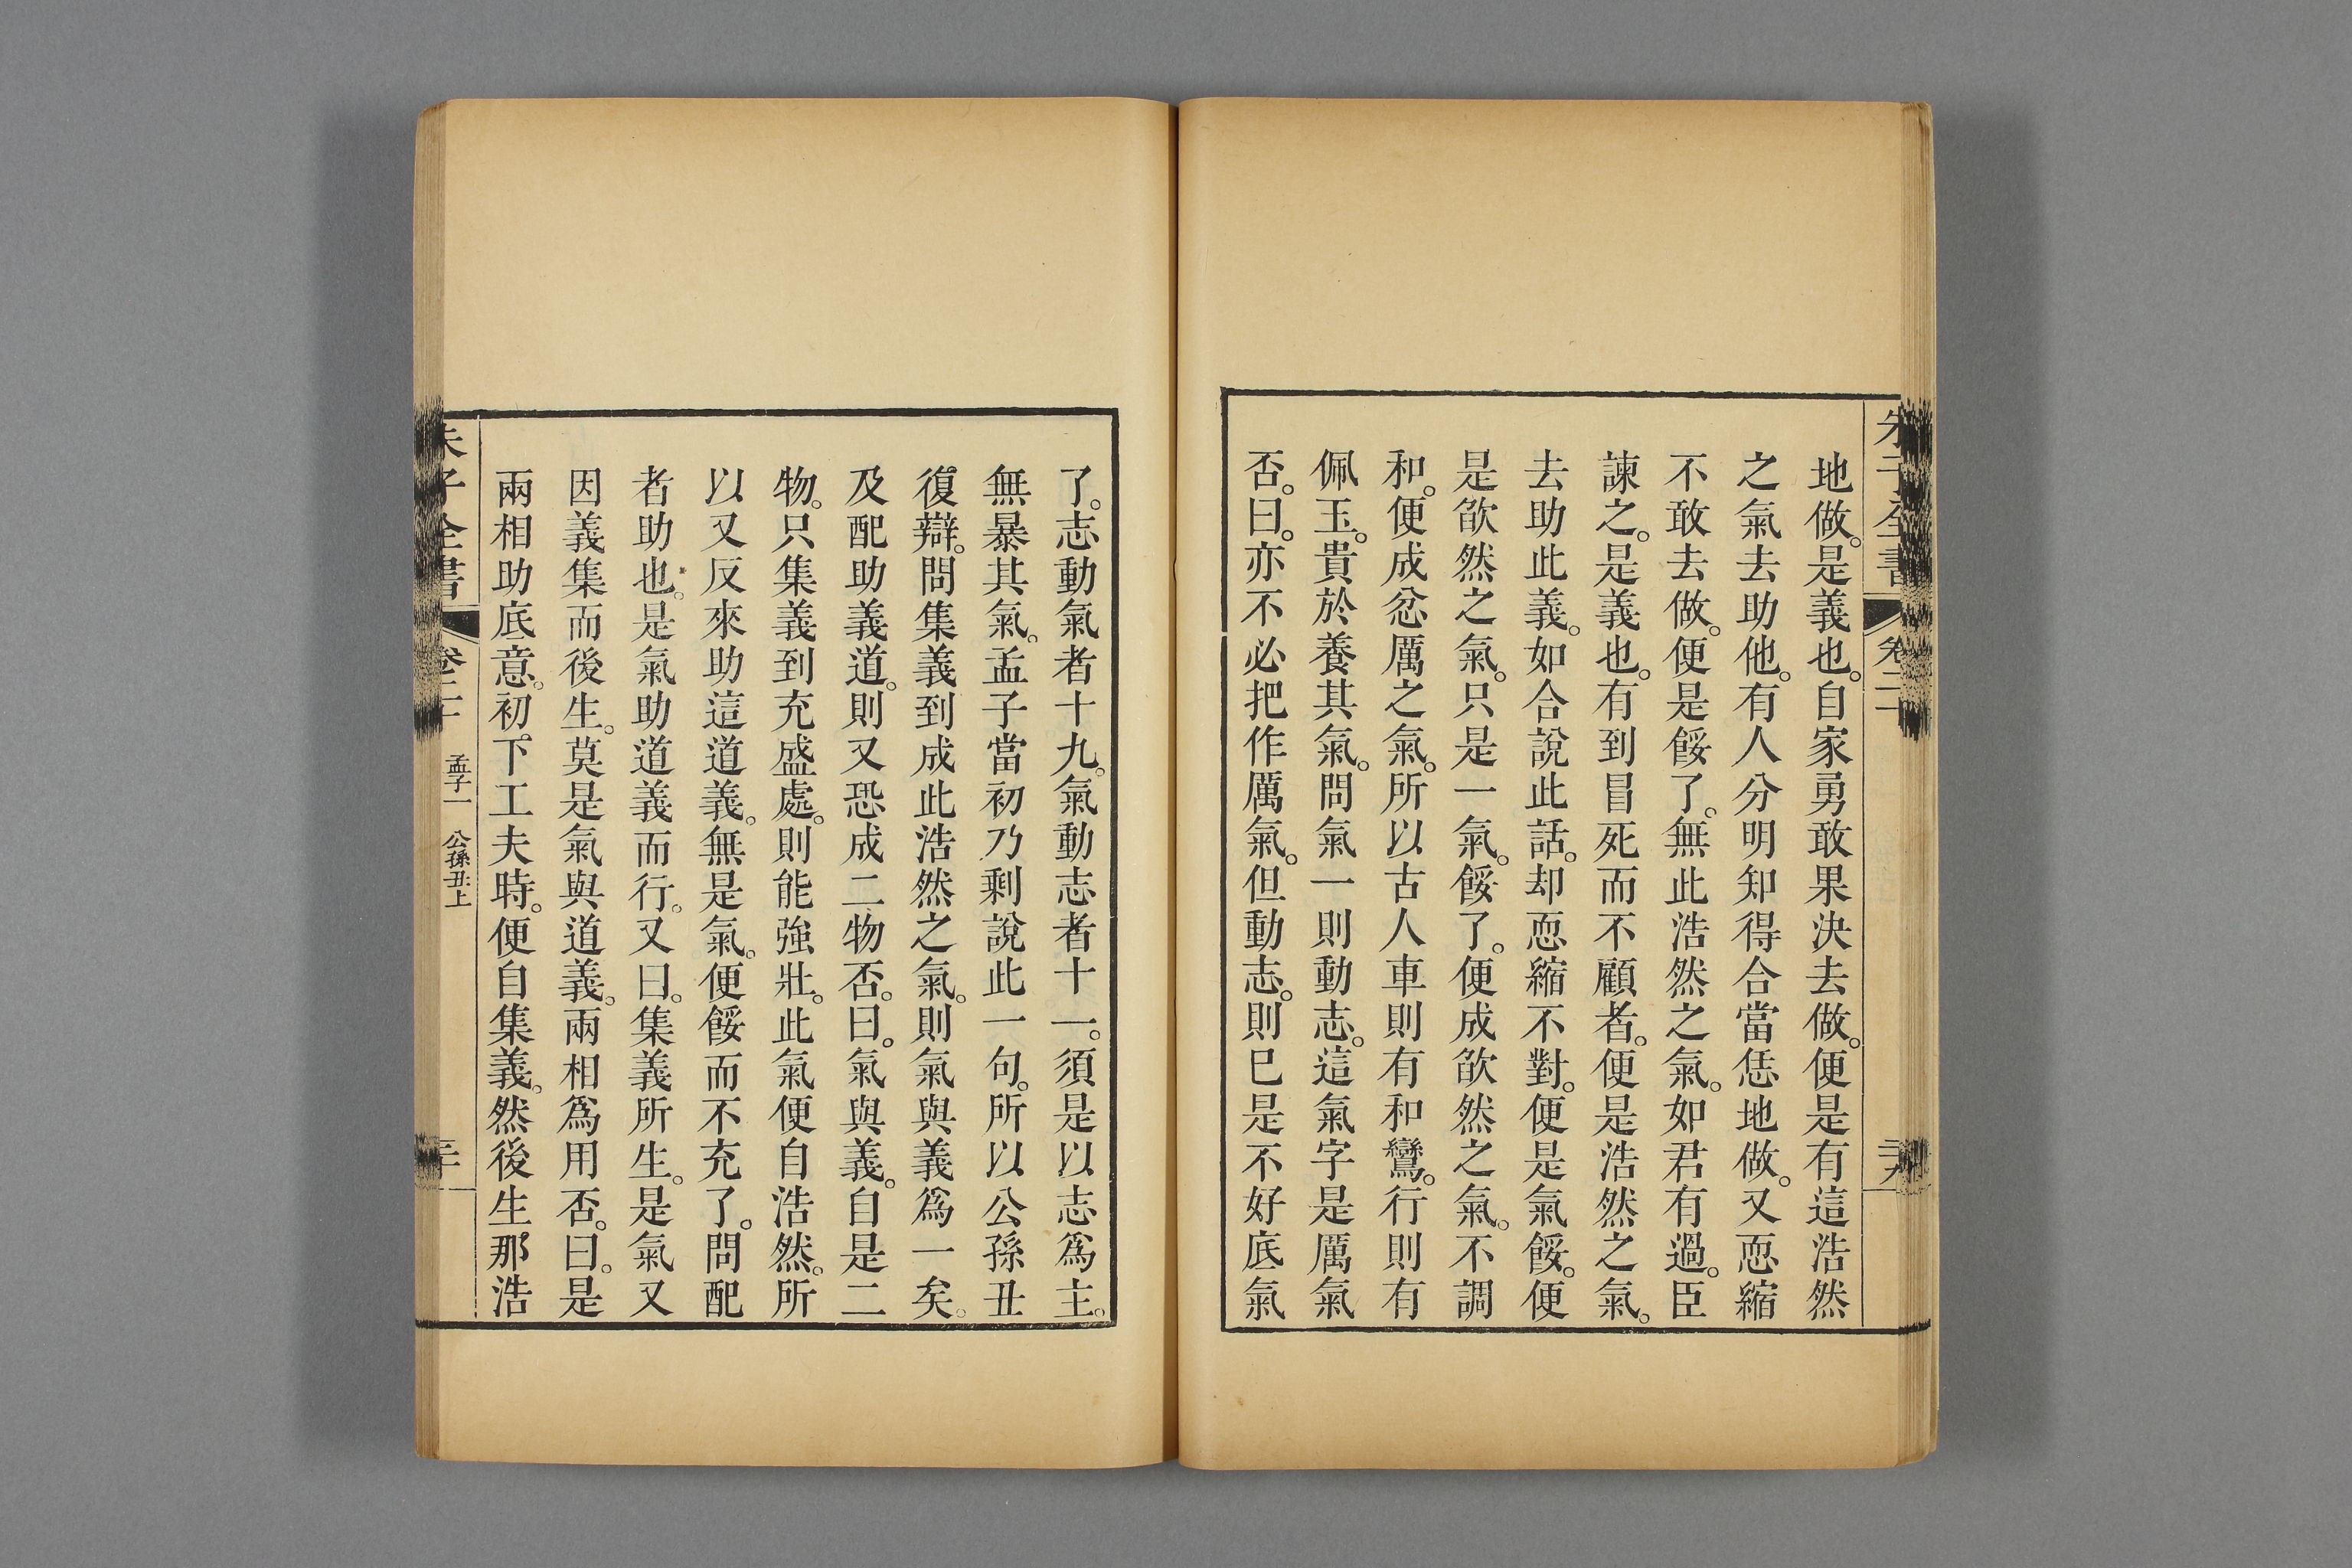 朱子全書 卷二十
地做。是義也。自家勇敢果決去做。便是有這浩然
之氣去助他。有人分明知得合當恁地做。又恧縮
不敢去做。便是餒了。無此浩然之氣。如君有過。臣
諫之。是義也。有到冒死而不顧者。便是浩然之氣。
去助此義。如合說此話。却恧縮不對。便是氣餒。便
是欿然之氣。只是一氣。餒了。便成欿然之氣。不調
和。便成忿厲之氣。所以古人車則有和鸞。行則有
佩玉。貴於養其氣。問氣一則動志。這氣字是厲氣
否。曰。亦不必把作厲氣。但動志。則巳是不好底氣
了。志動氣者十九。氣動志者十一。須是以志爲主。
無暴其氣。孟子當初乃剩說此一句。所以公孫丑
復辯。問集義到成此浩然之氣。則氣與義爲一矣。
及配助義道。則又恐成二物否。曰。氣與義。自是二
物。只集義到充盛處。則能強壯。此氣便自浩然。所
以又反來助這道義。無是氣。便餒而不充了。問配
者助也。是氣助道義而行。又曰。集義所生。是氣又
因義集而後生。莫是氣與道義。兩相爲用否。曰。是
兩相助底意。初下工夫時。便自集義。然後生那浩
朱子全書 卷二十 孟子一 公孫丑上 三十